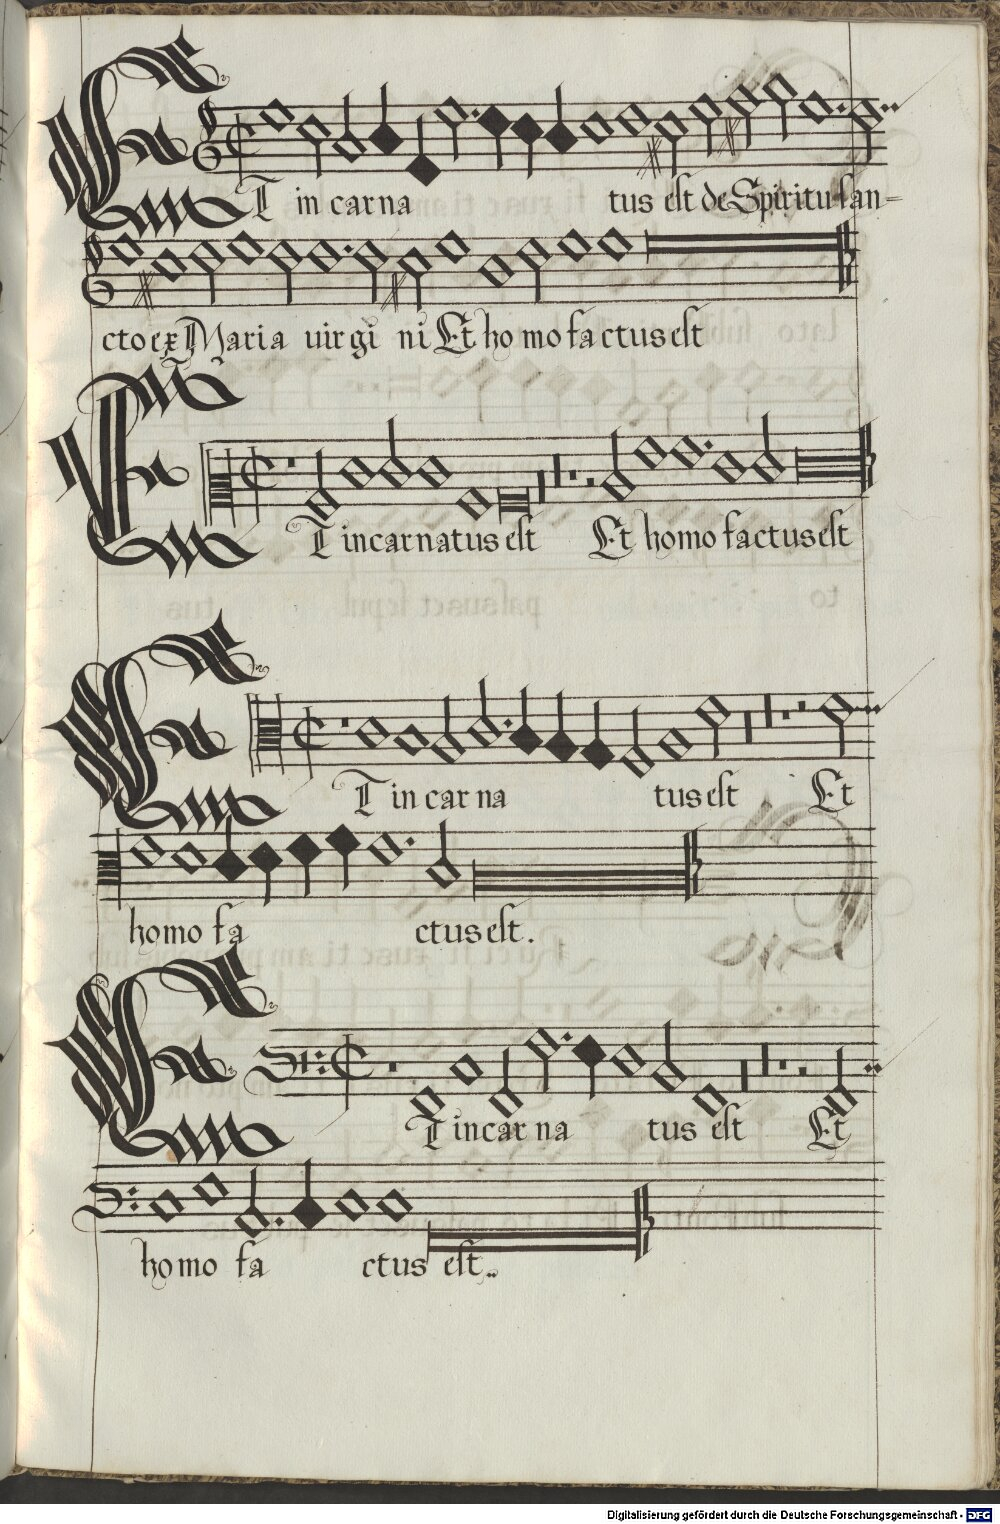 ET in carna tus est de Spiritu san=
cto ex Maria uirgi ni Et homo factus est
ET incarnatus est Et homo factus est
ET in carna tus est Et
homo fa ctus est.
ET incarna tus est Et
homo fa ctus est..
Digitalisierung gefördert durch die Deutsche Forschungsgemeinschaft - DFG